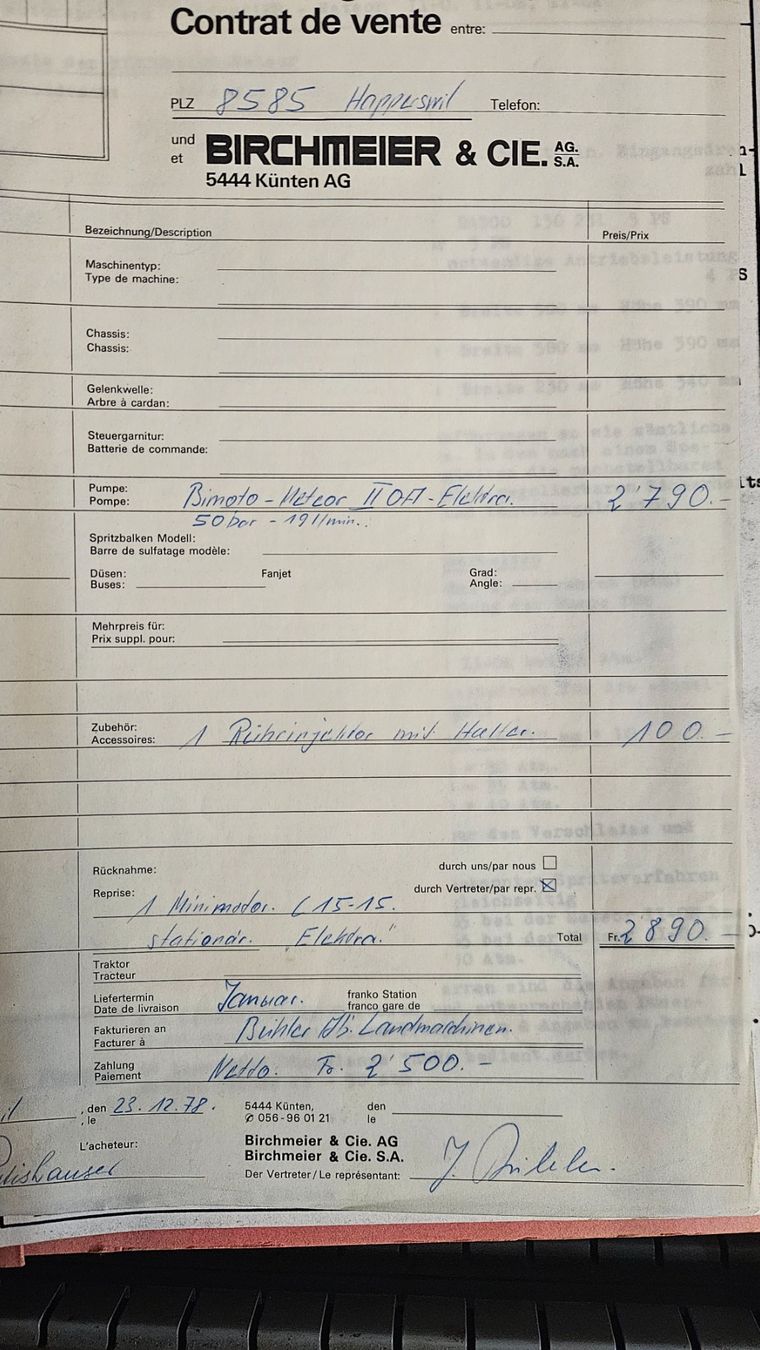 Contrat de vente entre:
PLZ 8585 Happerswil Telefon:
und
et
BIRCHMEIER & CIE. AG.
S.A.
5444 Künten AG
Bezeichnung/Description Preis/Prix
Maschinentyp:
Type de machine:
Chassis:
Chassis:
Gelenkwelle:
Arbre à cardan:
Steuergarnitur:
Batterie de commande:
Pumpe:
Pompe: Bimoto-Meteor II OA-Elektra. 2'790.-
50 bar - 19 l/min.
Spritzbalken Modell:
Barre de sulfatage modèle:
Düsen: Fanjet Grad:
Buses: Angle:
Mehrpreis für:
Prix suppl. pour:
Zubehör:
Accessoires: 1 Rührinjektor mit Halter. 100.-
Rücknahme: durch uns/par nous
Reprise: durch Vertreter/par repr.
1 Minimotor. C 15-15.
stationär. "Elektra." Total Fr. 2890.-
Traktor
Tracteur
Liefertermin Januar. franko Station
Date de livraison franco gare de
Fakturieren an
Facturer à Bühler Landmaschinen.
Zahlung
Paiement Netto. Fr. 2'500.-
, den 23.12.78. 5444 Künten, den
, le ✆ 056-96 01 21 le
L'acheteur: Birchmeier & Cie. AG
Birchmeier & Cie. S.A.
Der Vertreter/Le représentant: